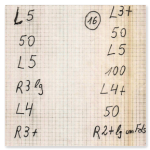 L5
50
L5
R3 lg
L4
R3+
16
L3+
50
L5
100
L4+
50
R2+ lg